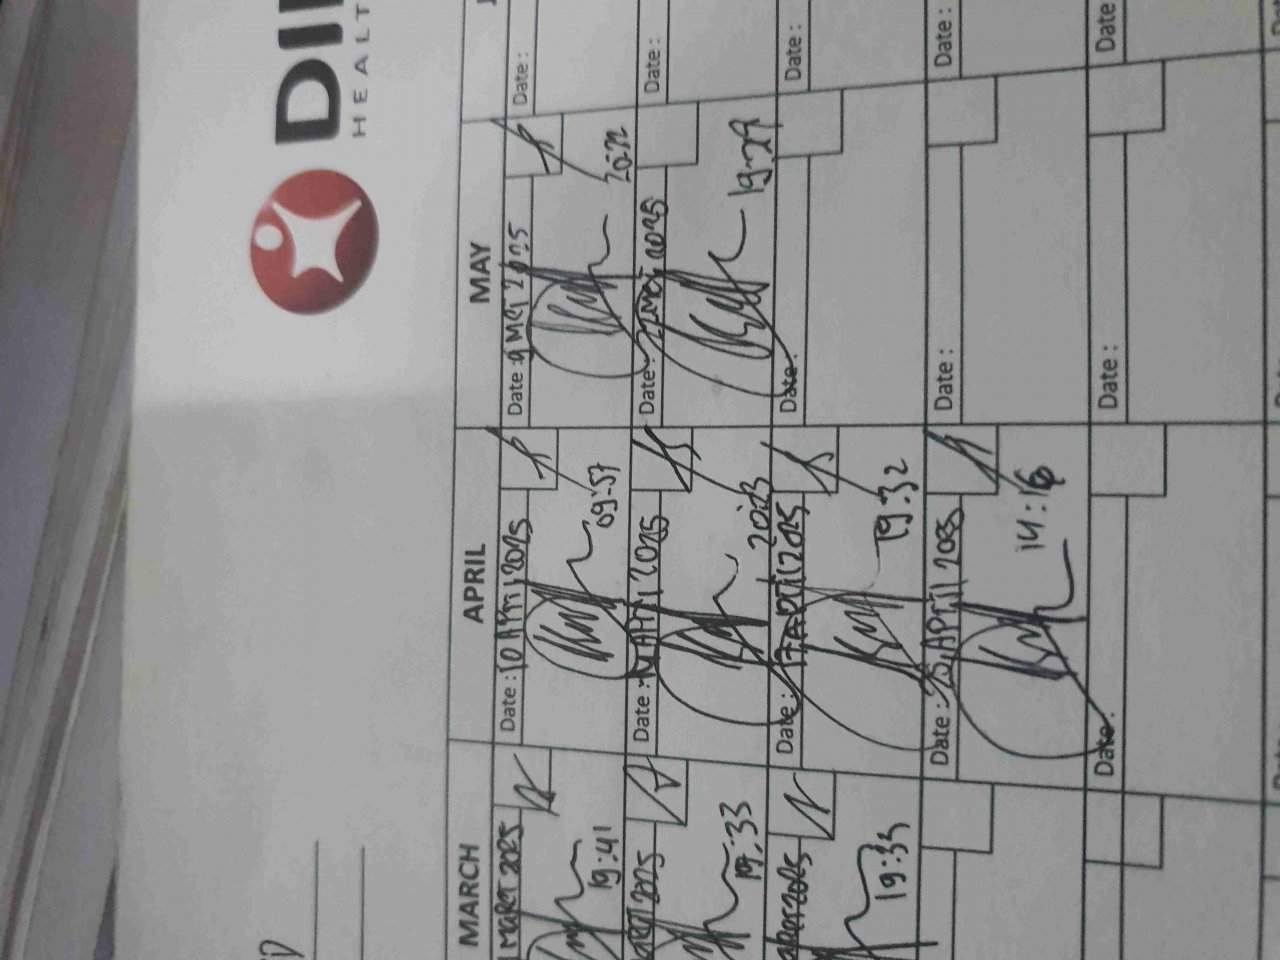 DI
HEALT
MARCH
APRIL
MAY
MARET 2025
19:41
Date : 10 April 2025
09:57
Date : 9 Mei 2025
20:22
Date :
2025
19:33
Date : April 2025
20:23
Date : 22 Mei 2025
19:29
Date :
2025
19:33
Date : 17 April 2025
19:32
Date :
Date :
Date : 25 April 2025
14:16
Date :
Date :
Date :
Date :
Date